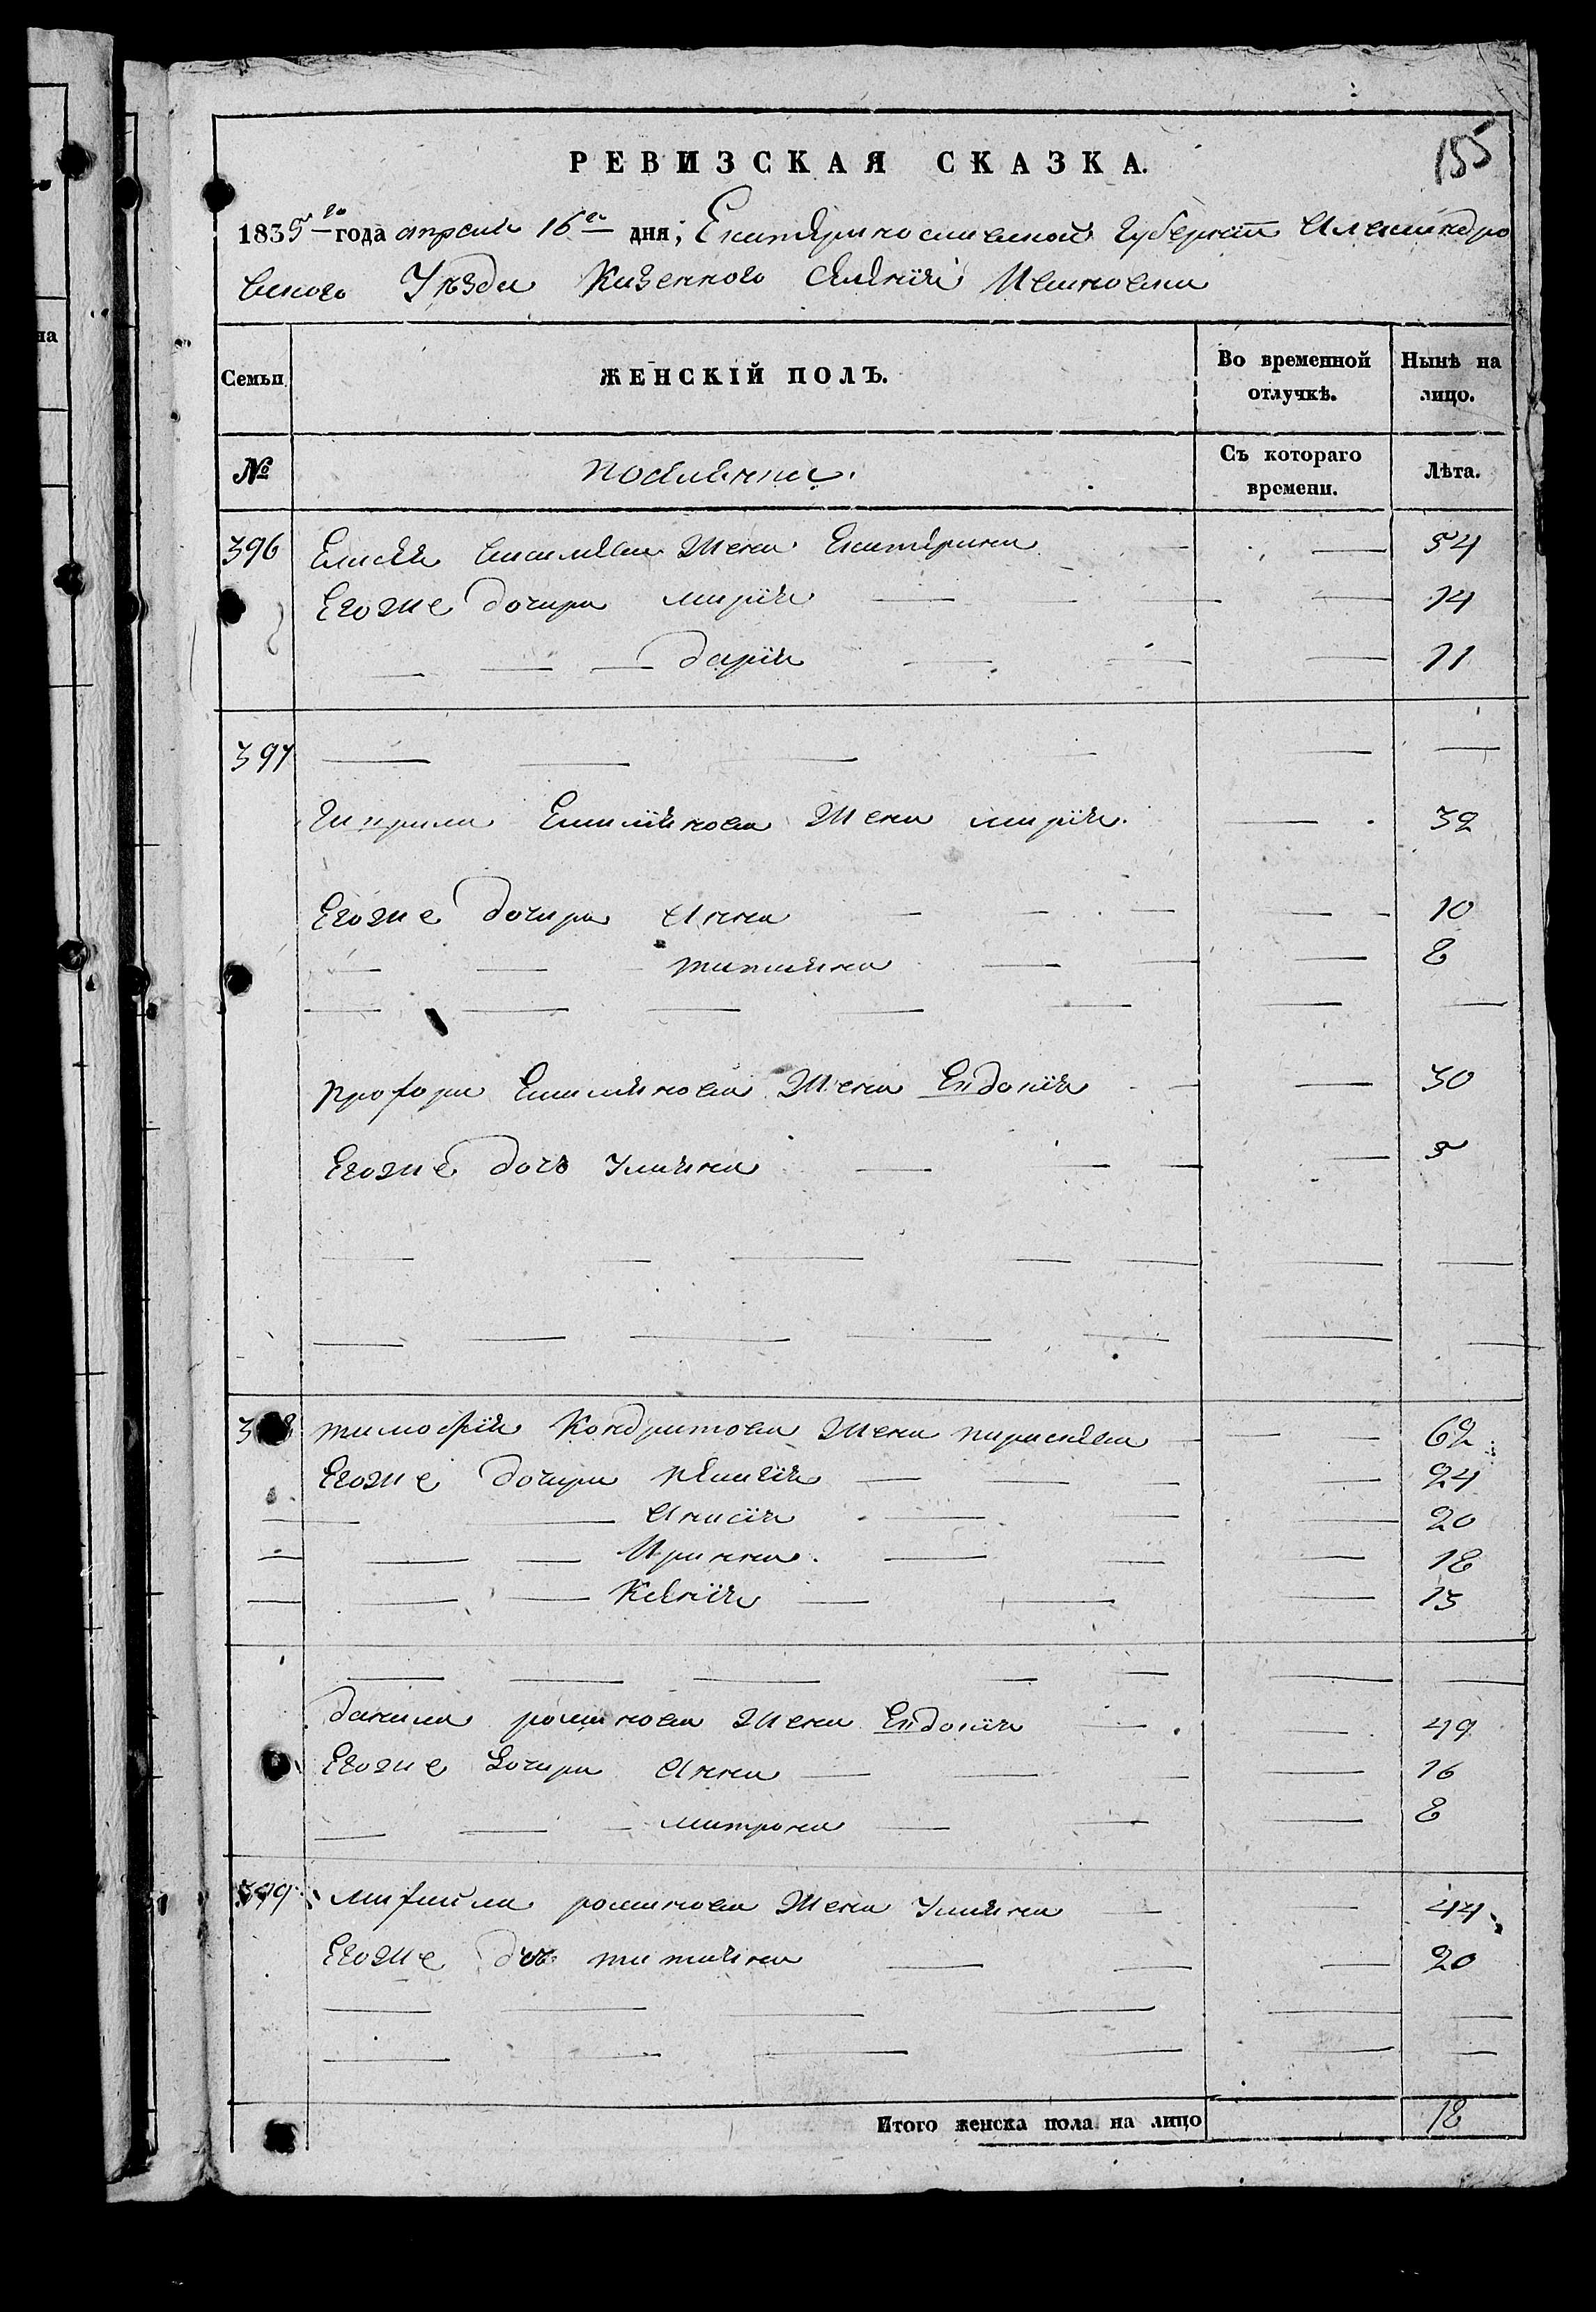 155
РЕВИЗСКАЯ СКАЗКА.
1835го года апреля 16го дня, Екатериносливской Губернїи Александро
вского Уезда Казенного Селенїя
Семьи ЖЕНСКІЙ ПОЛЪ. Во временной отлучкѣ. Нынѣ на лицо.
№ поселянки. Съ котораго времени. Лѣта.
396 Елисея Василиева Жена Екатерина — — 54
Егоже дочери марїя — — — — 14
— — — дарїя — — — 11
397 — — — — — —
Гаврила Емилянова Жена марїя. — 32
Егоже дочери Анна — — — — 10
— — татияна — — — 8
— — — — — — —
прохора Емилянова Жена Евдокїя — — 30
Егоже дочь Улияна — — — — 5
— — — — — — —
— — — — — — —
398 тимофея Кондратова Жена параскева — — 62
Егоже дочери пелагїя — — — 24
— — — Анисїя — — — 20
— — — Иринна — — — 18
— — — Ксенїя — — — 13
— — — — — — —
данила романова Жена Евдокїя — — 49
Егоже дочери Анна — — — — 16
— — — матрона — — — 8
399 михайла романова Жена Улияна — — 44
Егоже дчь татияна — — — 20
— — — — — —
— — — — — —
Итого женска пола на лицо 18